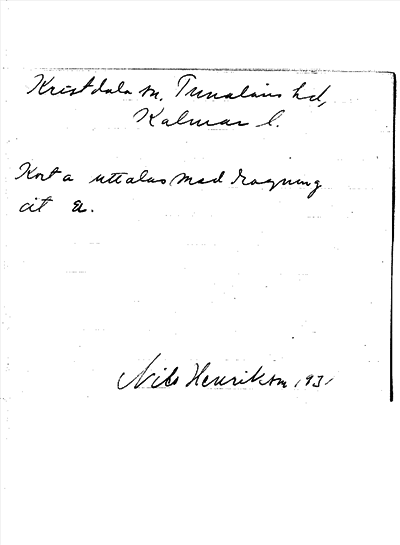 Kristdala sn, Tunaläns hd,
Kalmar l.
Kort a uttalas med dragning
åt ä.
Nils Henrikson 1931